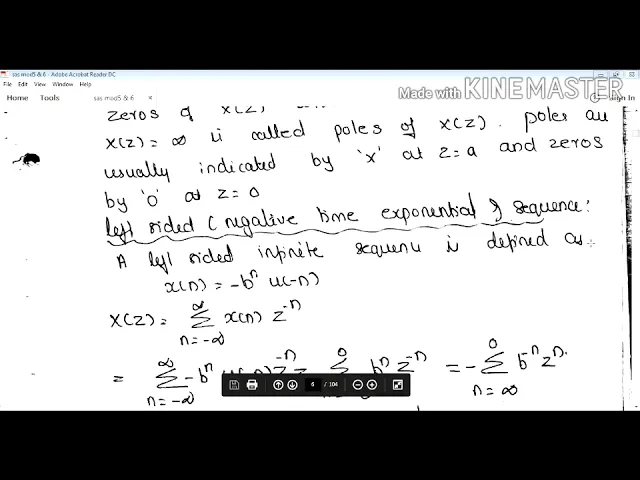 sas mod5 & 6 - Adobe Acrobat Reader DC
File Edit View Window Help
Made with KINEMASTER
Home Tools sas mod5 & 6 × Sign In
zeros of X(Z)
X(Z) = ∞ is called poles of X(Z). poles are
usually indicated by 'x' at Z=a and zeros
by '0' at Z=0
left sided (negative time exponential) sequence:
A left sided infinite sequence is defined as:
x(n) = -bⁿ u(-n)
X(Z) = ∞ Σ n=-∞ x(n) z⁻ⁿ
= ∞ Σ n=-∞ -bⁿ z⁻ⁿ 0 bⁿ z⁻ⁿ = - 0 Σ n=∞ b⁻ⁿ zⁿ.
6 / 104